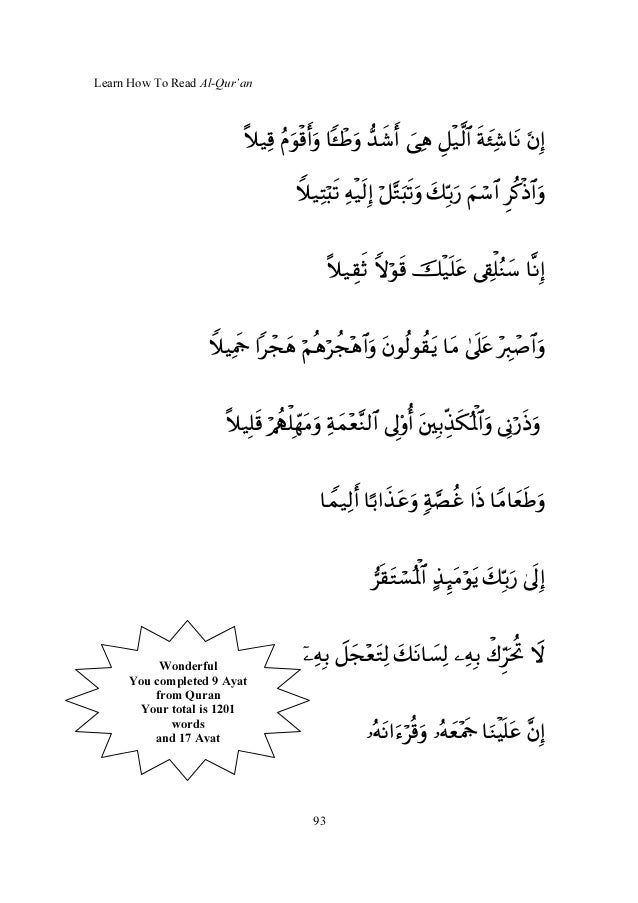 Learn How To Read Al-Qur'an
إِنَّ نَاشِئَةَ ٱلَّيۡلِ هِىَ أَشَدُّ وَطۡـٔٗا وَأَقۡوَمُ قِيلاً
وَٱذۡكُرِ ٱسۡمَ رَبِّكَ وَتَبَتَّلۡ إِلَيۡهِ تَبۡتِيلٗا
إِنَّا سَنُلۡقِى عَلَيۡكَ قَوۡلٗا ثَقِيلاً
وَٱصۡبِرۡ عَلَىٰ مَا يَقُولُونَ وَٱهۡجُرۡهُمۡ هَجۡرٗا جَمِيلٗا
وَذَرۡنِى وَٱلۡمُكَذِّبِينَ أُوْلِى ٱلنَّعۡمَةِ وَمَهِّلۡهُمۡ قَلِيلاً
وَطَعَامٗا ذَا غُصَّةٖ وَعَذَابًا أَلِيمٗا
إِلَىٰ رَبِّكَ يَوۡمَئِذٍ ٱلۡمُسۡتَقَرُّ
لَا تُحَرِّكۡ بِهِۦ لِسَانَكَ لِتَعۡجَلَ بِهِۦٓ
إِنَّ عَلَيۡنَا جَمۡعَهُۥ وَقُرۡءَانَهُۥ
Wonderful
You completed 9 Ayat
from Quran
Your total is 1201
words
and 17 Ayat
93